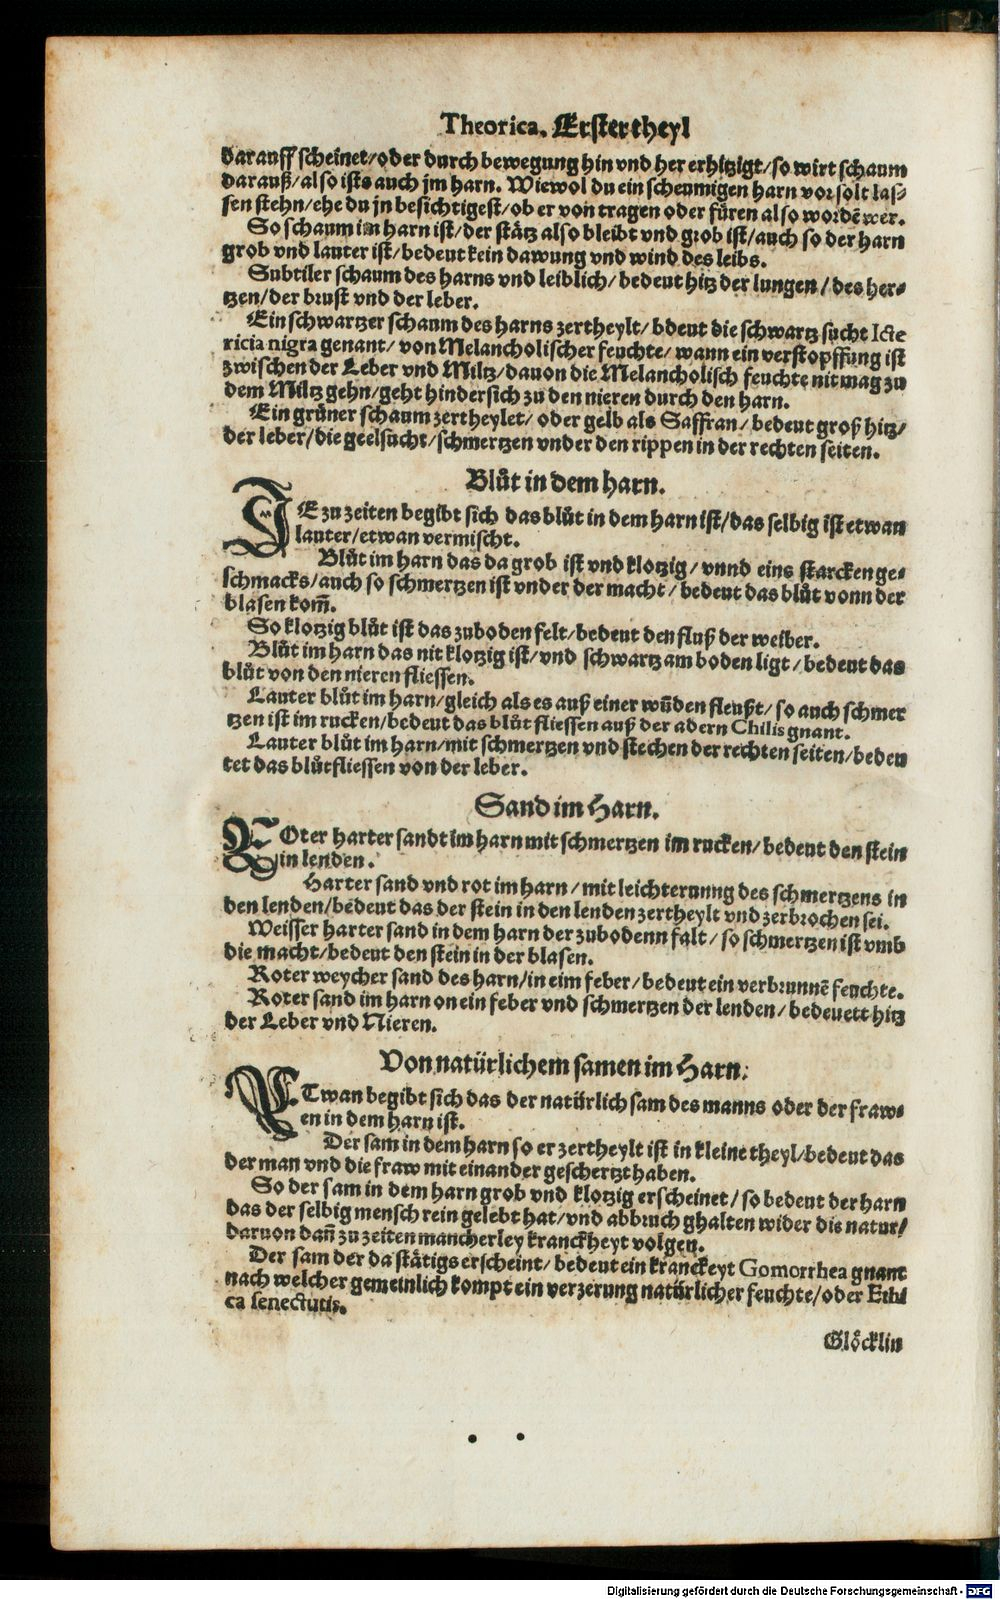 Theorica. Erster theyl
darauff scheinet/oder durch bewegung hin vnd her erhitzigt/so wirt schaum
darauß/also ists auch jm harn. Wiewol du ein scheumigen harn vor solt las⸗
sen stehn/ehe du jn besichtigest/ob er von tragen oder füren also wordē wer.
So schaum im harn ist/der stätz also bleibt vnd grob ist/auch so der harn
grob vnd lauter ist/bedeut kein dawung vnd wind des leibs.
Subtiler schaum des harns vnd leiblich/bedeut hitz der lungen/des her⸗
tzen/der brust vnd der leber.
Ein schwartzer schaum des harns zertheylt/bdeut die schwartz sucht Icte
ricia nigra genant/von Melancholischer feuchte/wann ein verstopffung ist
zwischen der Leber vnd Miltz/dauon die Melancholisch feuchte nit mag zu
dem Miltz gehn/geht hindersich zu den nieren durch den harn.
Ein grüner schaum zertheylet/oder gelb als Saffran/bedeut groß hitz/
der leber/die geelsucht/schmertzen vnder den rippen in der rechten seiten.
Blůt in dem harn.
JE zu zeiten begibt sich das blůt in dem harn ist/das selbig ist etwan
lauter/etwan vermischt.
Blůt im harn das da grob ist vnd klotzig/vnnd eins starcken ge⸗
schmacks/auch so schmertzen ist vnder der macht/bedeut das blůt vonn der
blasen kom̄.
So klotzig blůt ist das zuboden felt/bedeut den fluß der weiber.
Blůt im harn das nit klotzig ist/vnd schwartz am boden ligt/bedeut das
blůt von den nieren fliessen.
Lauter blůt im harn/gleich als es auß einer wūden fleußt/so auch schmer
tzen ist im rucken/bedeut das blůt fliessen auß der adern Chilis gnant.
Lauter blůt im harn/mit schmertzen vnd stechen der rechten seiten/bedeu
tet das blůtfliessen von der leber.
Sand im Harn.
ROter harter sandt im harn mit schmertzen im rucken/bedeut den stein
in lenden.
Harter sand vnd rot im harn/mit leichterunng des schmertzens in
den lenden/bedeut das der stein in den lenden zertheylt vnd zerbrochen sei.
Weisser harter sand in dem harn der zubodenn falt/so schmertzen ist vmb
die macht/bedeut den stein in der blasen.
Roter weycher sand des harn/in eim feber/bedeut ein verbrunnē feuchte.
Roter sand im harn on ein feber vnd schmertzen der lenden/bedeuett hitz
der Leber vnd Nieren.
Von natürlichem samen im Harn.
ETwan begibt sich das der natürlich sam des manns oder der fraw⸗
en in dem harn ist.
Der sam in dem harn so er zertheylt ist in kleine theyl/bedeut das
der man vnd die fraw mit einander geschertzt haben.
So der sam in dem harn grob vnd klotzig erscheinet/so bedeut der harn
das der selbig mensch rein gelebt hat/vnd abbruch ghalten wider die natur/
daruon dañ zu zeiten mancherley kranckheyt volgen.
Der sam der da stätigs erscheint/bedeut ein kranckeyt Gomorrhea gnant
nach welcher gemeinlich kompt ein verzerung natürlicher feuchte/oder Ethi
ca senectutis.
Glöcklin
Digitalisierung gefördert durch die Deutsche Forschungsgemeinschaft - DFG